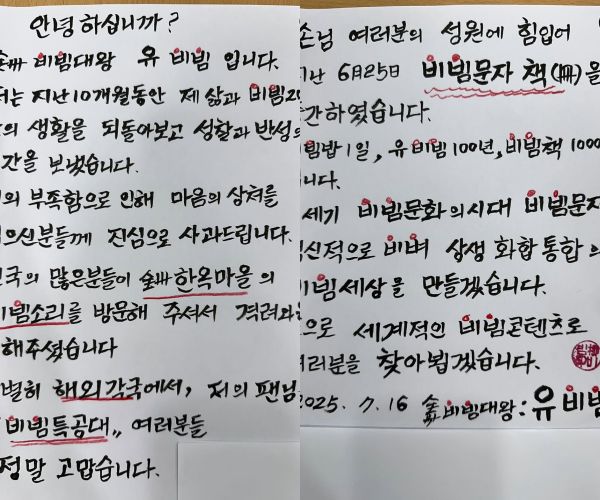 안녕하십니까?
비빔대왕 유비빔 입니다.
는 지난 10개월동안 제 삶과 비빔20
의 생활을 되돌아보고 성찰과 반성의
간을 보냈습니다.
의 부족함으로 인해 마음의 상처를
으신분들께 진심으로 사과드립니다.
국의 많은분들이 한옥마을의
비빔소리를 방문해 주셔서 격려와
해주셨습니다
별히 해외각국에서, 저의 팬님
비빔특공대,, 여러분들
정말 고맙습니다.
손님 여러분의 성원에 힘입어
난 6월25일 비빔문자 책(冊)을
간하였습니다.
빔밥 1일, 유비빔 100년, 비빔책 1000
니다.
세기 비빔문화의시대 비빔문자
신적으로 비벼 상생 화합 통합의
빔세상을 만들겠습니다.
으로 세계적인 비빔콘텐츠로
여러분을 찾아뵙겠습니다.
2025. 7. 16 비빔대왕: 유비빔